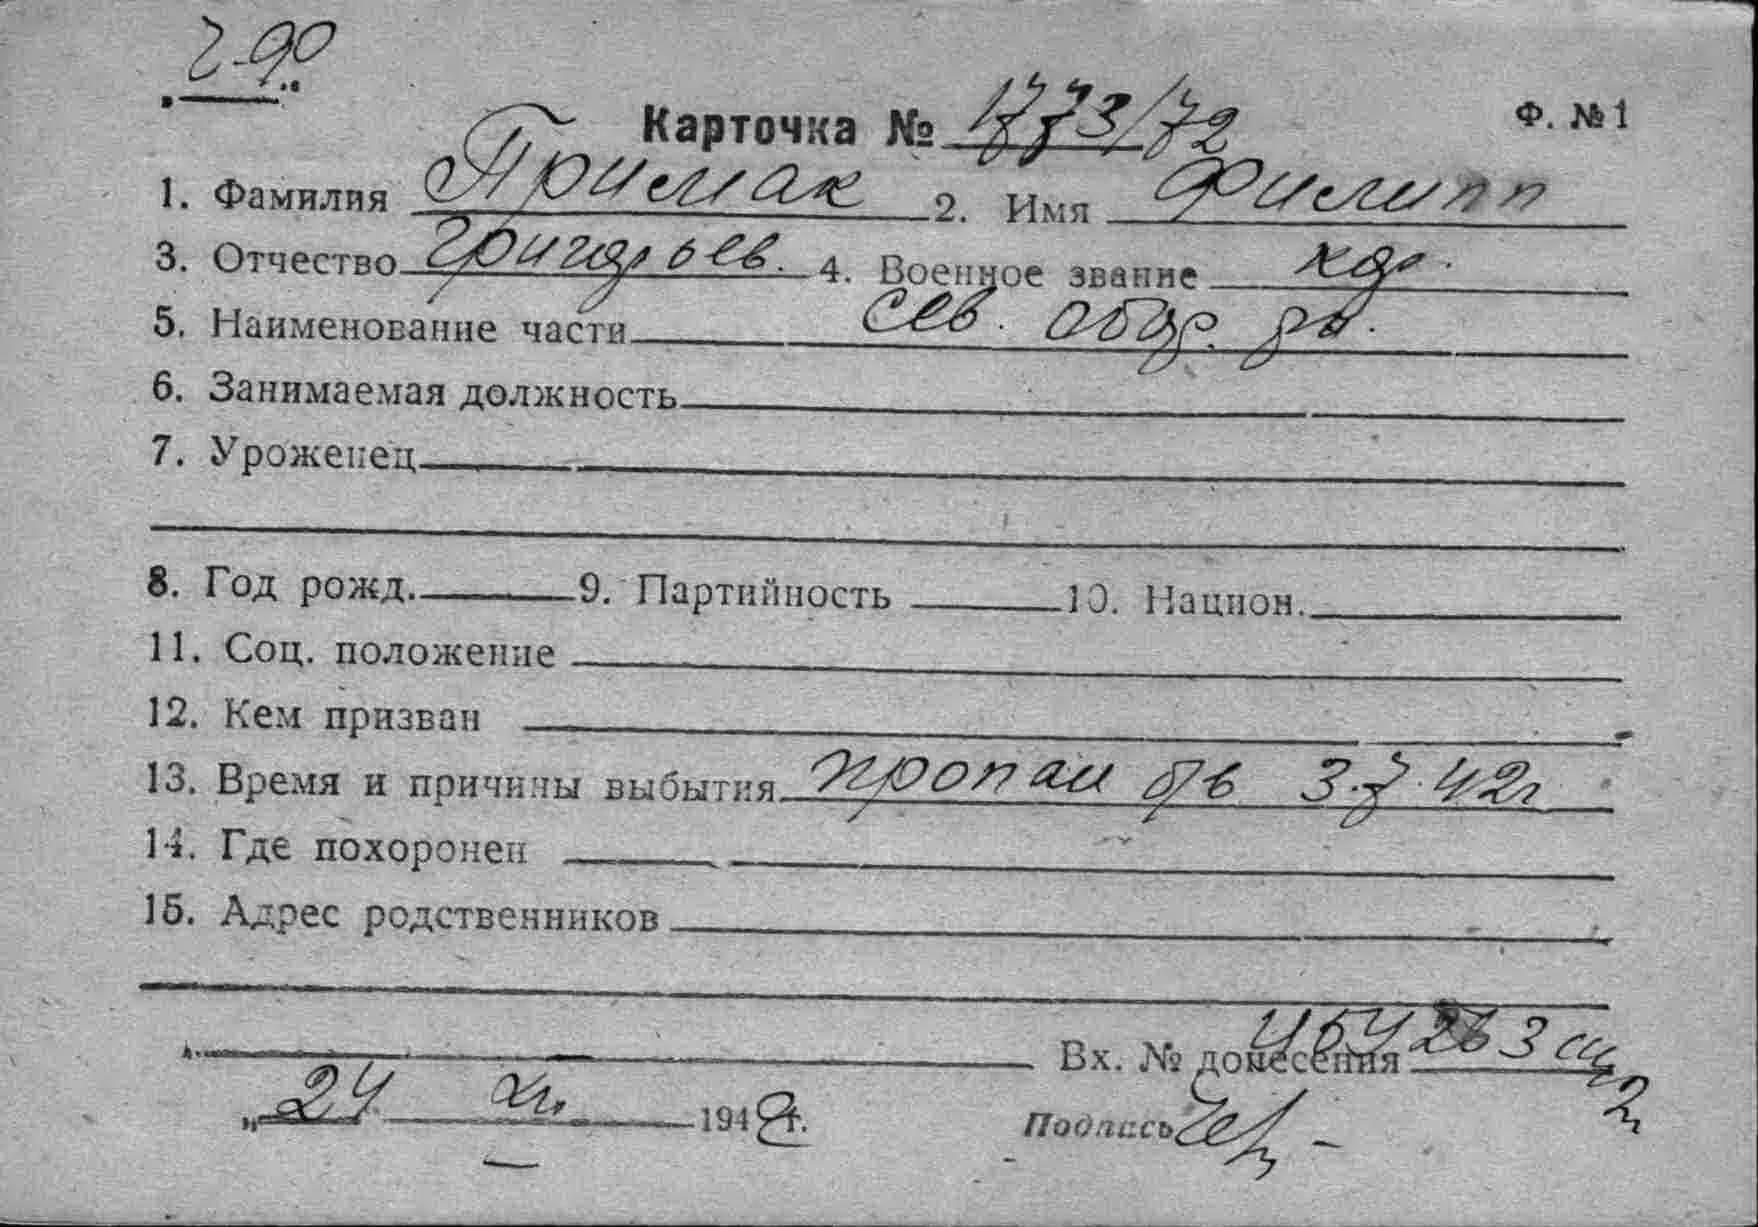 Ф. №1
Карточка № 1773/72
1. Фамилия Примак 2. Имя Филипп
3. Отчество Григорьев. 4. Военное звание кр.
5. Наименование части сев. обор. р-н.
6. Занимаемая должность
7. Уроженец
8. Год рожд. 9. Партийность 10. Национ.
11. Соц. положение
12. Кем призван
13. Время и причины выбытия пропал б/в 3.7.42г
14. Где похоронен
15. Адрес родственников
Вх. № донесения
„24 194 г.
Подпись